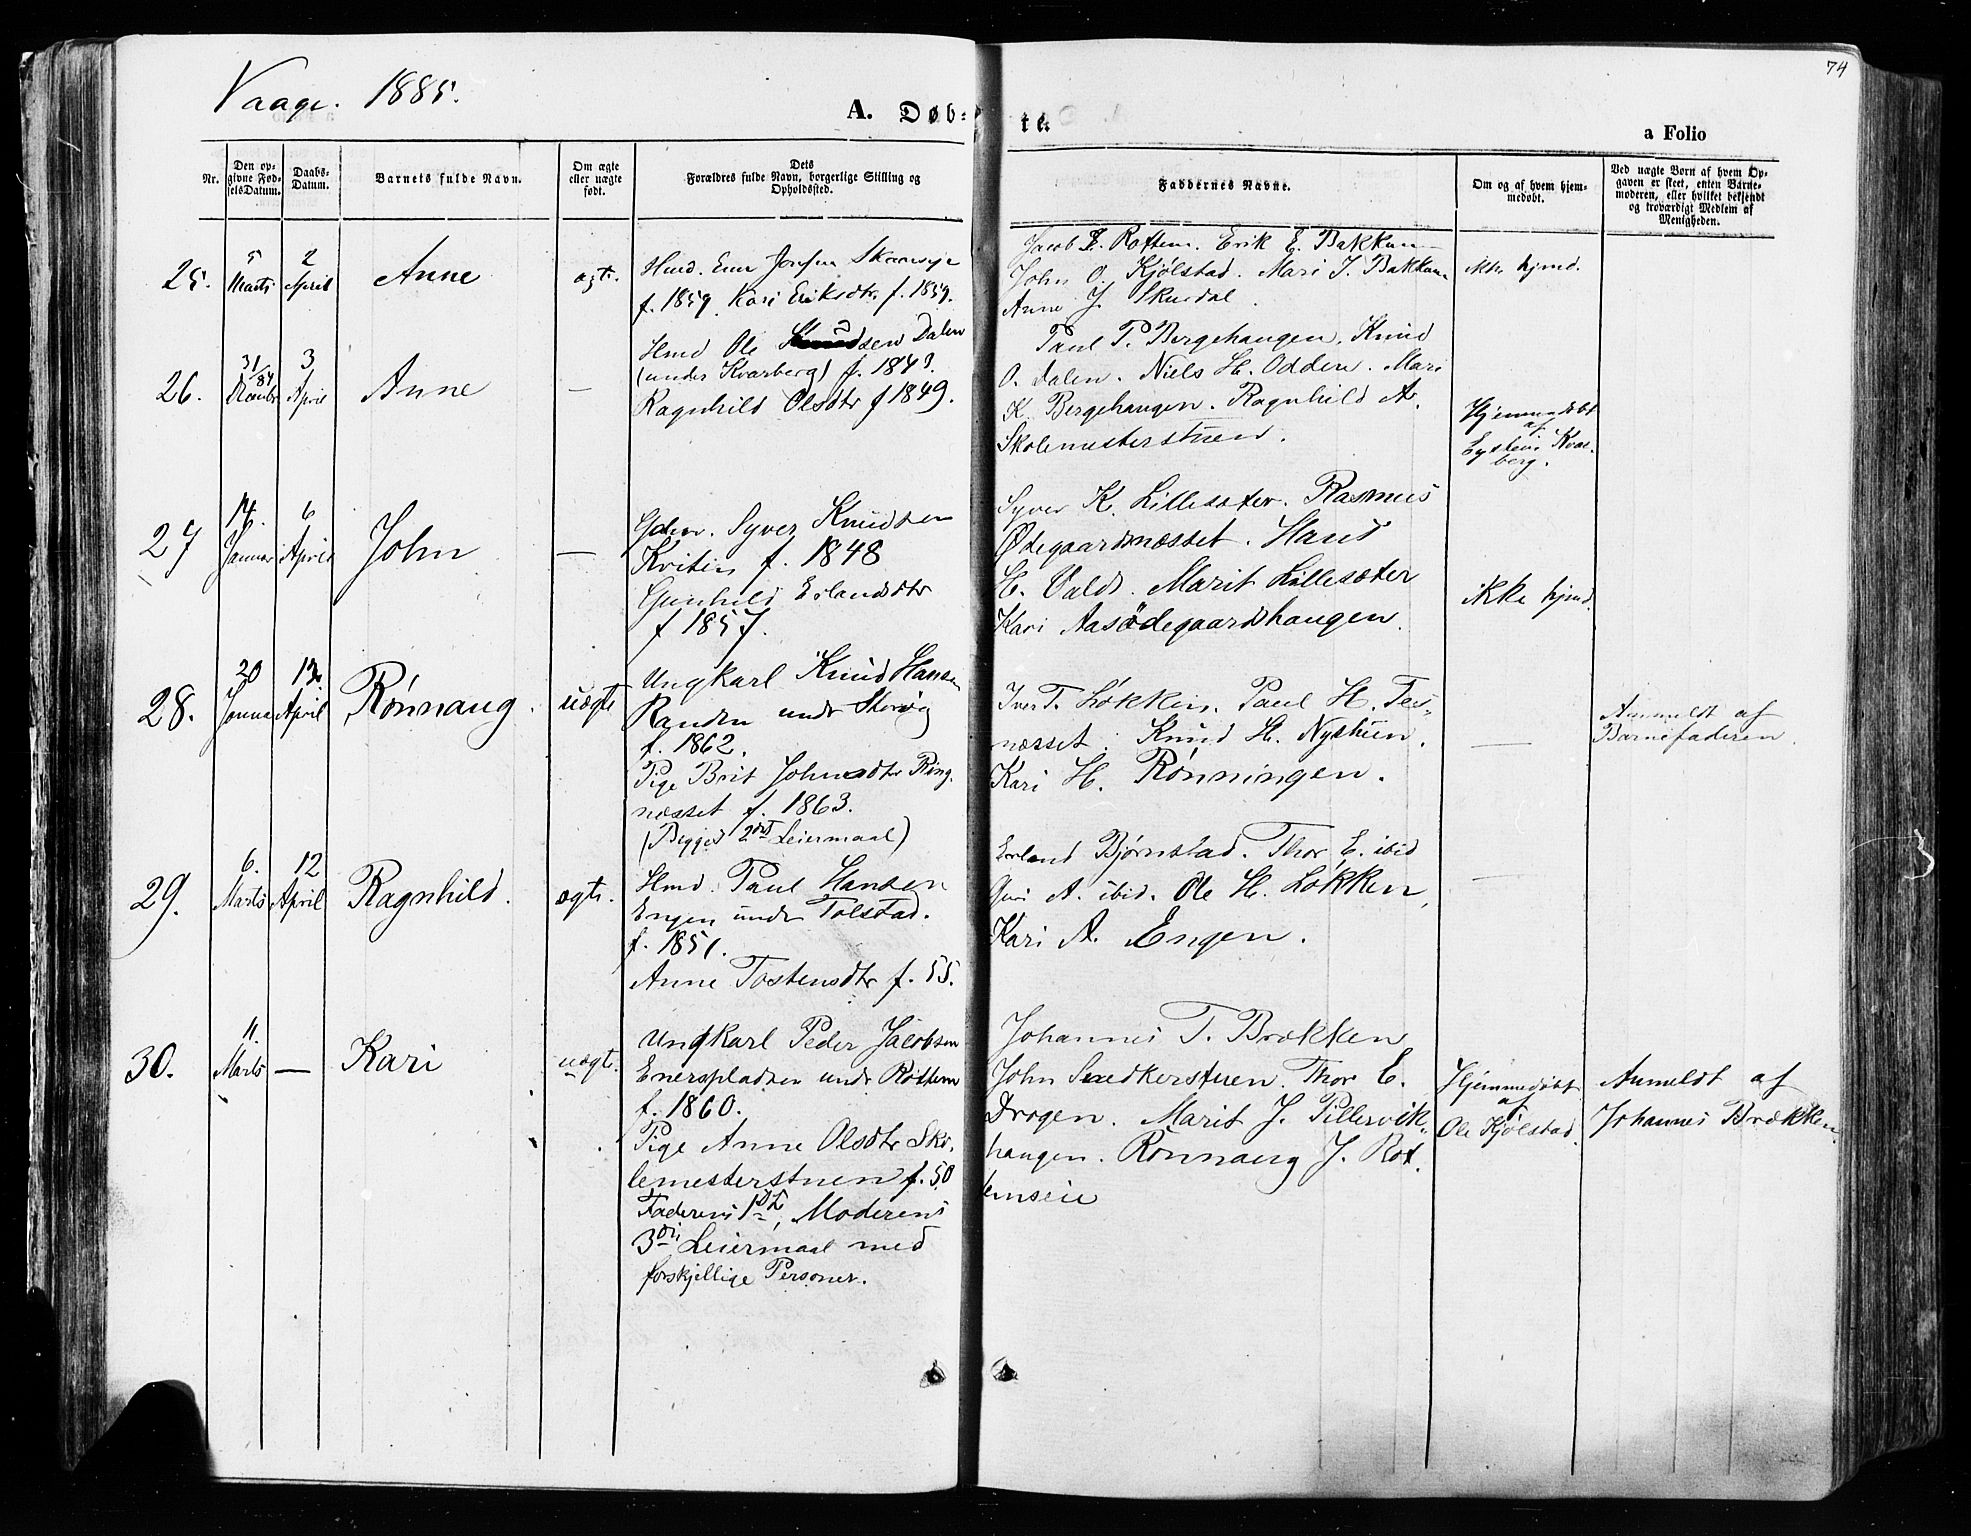 Vaage. 1885.
74
A. Døb-
te.
a Folio
Nr.
Den op-
givne Fød-
selsDatum.
Daabs-
Datum.
Barnets fulde Navn.
Om ægte
eller uægte
født.
Dets
Forældres fulde Navn, borgerlige Stilling og
Opholdssted.
Faddernes Navne.
Om og af hvem hjem-
medøbt.
Ved uægte Børn af hvem Op-
gaven er skeet, enten Barne-
moderen, eller hvilket bekjendt
og troværdigt Medlem af
Menigheden.
25.
5
Marts
2
April
Anne
ægte.
Hmd.
f. 1859. Kari Eriksdtr. f. 1859.
Jacob E. Rottem. Erik E. Bakken
John O. Kjølstad. Mari J. Bakken
Anne J. Skurdal.
ikke hjmd.
26.
31/84
3
April
Anne
—
Hmd Ole Dalen
(under Kvarberg) f. 1843.
Ragnhild Olsdtr f 1849.
Paul P. Bergehaugen. Knud
O. Dalen. Niels H. Odden. Mari
K. Bergehaugen. Ragnhild A.
Skolemesterstuen.
Hjemmedøbt
af
Eystein Kvar-
berg.
27
14.
Januar
6
April
John
—
Gdm. Syver Knudsen
Kvitin f. 1848
Gunhild Erlandsdtr
f 1857.
Syver K. Lillesæter. Rasmus
Ødegaardsnæsset. Hans
H. Valde. Marit Lillesæter
Kari Aasødegaardshaugen.
ikke hjmd.
28.
20
Januar
12
April
Rønnaug.
uægte
Ungkarl Knud Hansen
Randen under Storvig
f. 1862.
Pige Brit Johnsdtr Ring-
næsset f. 1863.
(Begges 2det Leiermaal)
Iver T. Løkken. Paul H. Tes-
næsset. Knud H. Nystuen.
Kari H. Rønningen.
—
Anmeldt af
Barnefaderen.
29.
6.
Marts
12
April
Ragnhild.
ægte.
Hmd. Paul Hansen
Engen under Tolstad.
f. 1851.
Anne Tostensdtr f. 55.
Erland Bjørnstad. Thor E. ibid
Guri A. ibid. Ole H. Løkken,
Kari A. Engen.
—
30.
11.
Marts
—
Kari
uægte.
Ungkarl Peder Jacobsen
Enerspladsen under Rottem
f. 1860.
Pige Anne Olsdtr Sko-
lemesterstuen f. 50
Faderens 1ste, Moderens
3die Leiermaal med
forskjellige Personer.
Johannes T. Brækken
John Snedkerstuen. Thor E.
Drogen. Marit J. Pillarvik-
haugen. Rønnaug J. Rot-
temseie
Hjemmedøbt
af
Ole Kjølstad.
Anmeldt af
Johannes Brækken.